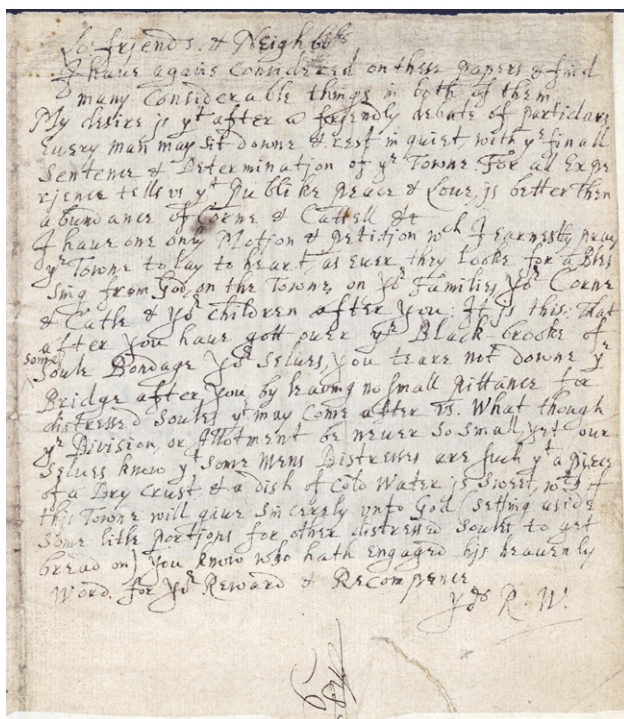 Lo: friends. & Neighb̄ʳˢ
I haue againe Considered on these papers & find
many Considerable things in both of them
My desire is yᵗ after a friendly debate of particulars
Euery man may sit downe & rest in quiet with yᵉ finall
Sentence & Determination of yᵉ Towne. For all Expe
rience tells vs yᵗ Publike peace & Loue, is better then
abundance of Corne & Cattell &c
I haue one only Motion & petition wᶜʰ I earnestly pray
yᵉ Towne to lay to heart, as euer they looke for a Bles
sing from God, on the Towne, on yoʳ Families yoʳ Corne
& Catle & yoʳ children after you: It is this: That
after you haue gott ouer yᵉ Black-brooke of
some
Soule Bondage yoʳ selues, you teare not downe yᵉ
Bridge after you, by leauing no Small Pittance for
distressed Soules yᵗ may come after vs. What though
yᵉ Division, or Allotment be neuer so small, yet our
Selues know yᵗ some mens Distresses are such yᵗ a piece
of a Dry crust & a dish of cold Water is sweet, wᶜʰ if
this Towne will giue sincerely vnto God (setting aside
Some little portions for other distressed Soules to get
bread on) you know who hath engaged his heavenly
Word. for yoʳ Reward & Recompence
yoʳˢ R. W.